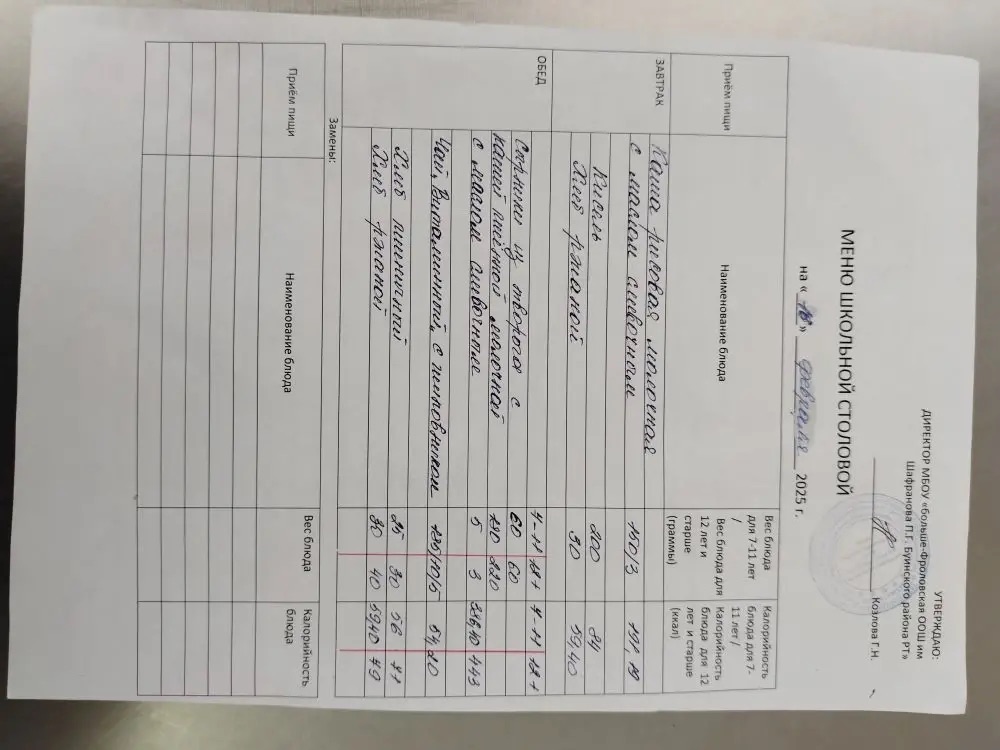 УТВЕРЖДАЮ:
ДИРЕКТОР МБОУ «Больше-Фроловская ООШ им
Шафранова П.Г. Буинского района РТ»
Козлова Г.Н.
МЕНЮ ШКОЛЬНОЙ СТОЛОВОЙ
на « 18 » февраля 2025 г.
Приём пищи Наименование блюда Вес блюда для 7-11 лет / Вес блюда для 12 лет и старше (граммы) Калорийность блюда для 7-11 лет / Калорийность блюда для 12 лет и старше (ккал)
ЗАВТРАК Каша рисовая молочная
с маслом сливочным 150/3
Кисель 200 84
Хлеб ржаной 30 59,40
ОБЕД 7-11 12+ 7-11 12+
Сырники из творога с 60 60
кашей молочной 220
с маслом сливочным 5 3 443
Чай, Витаминный, с шиповником 64,20
Хлеб пшеничный 25 30 56 71
Хлеб ржаной 30 40 59,40 79
Замены:
Приём пищи Наименование блюда Вес блюда Калорийность блюда